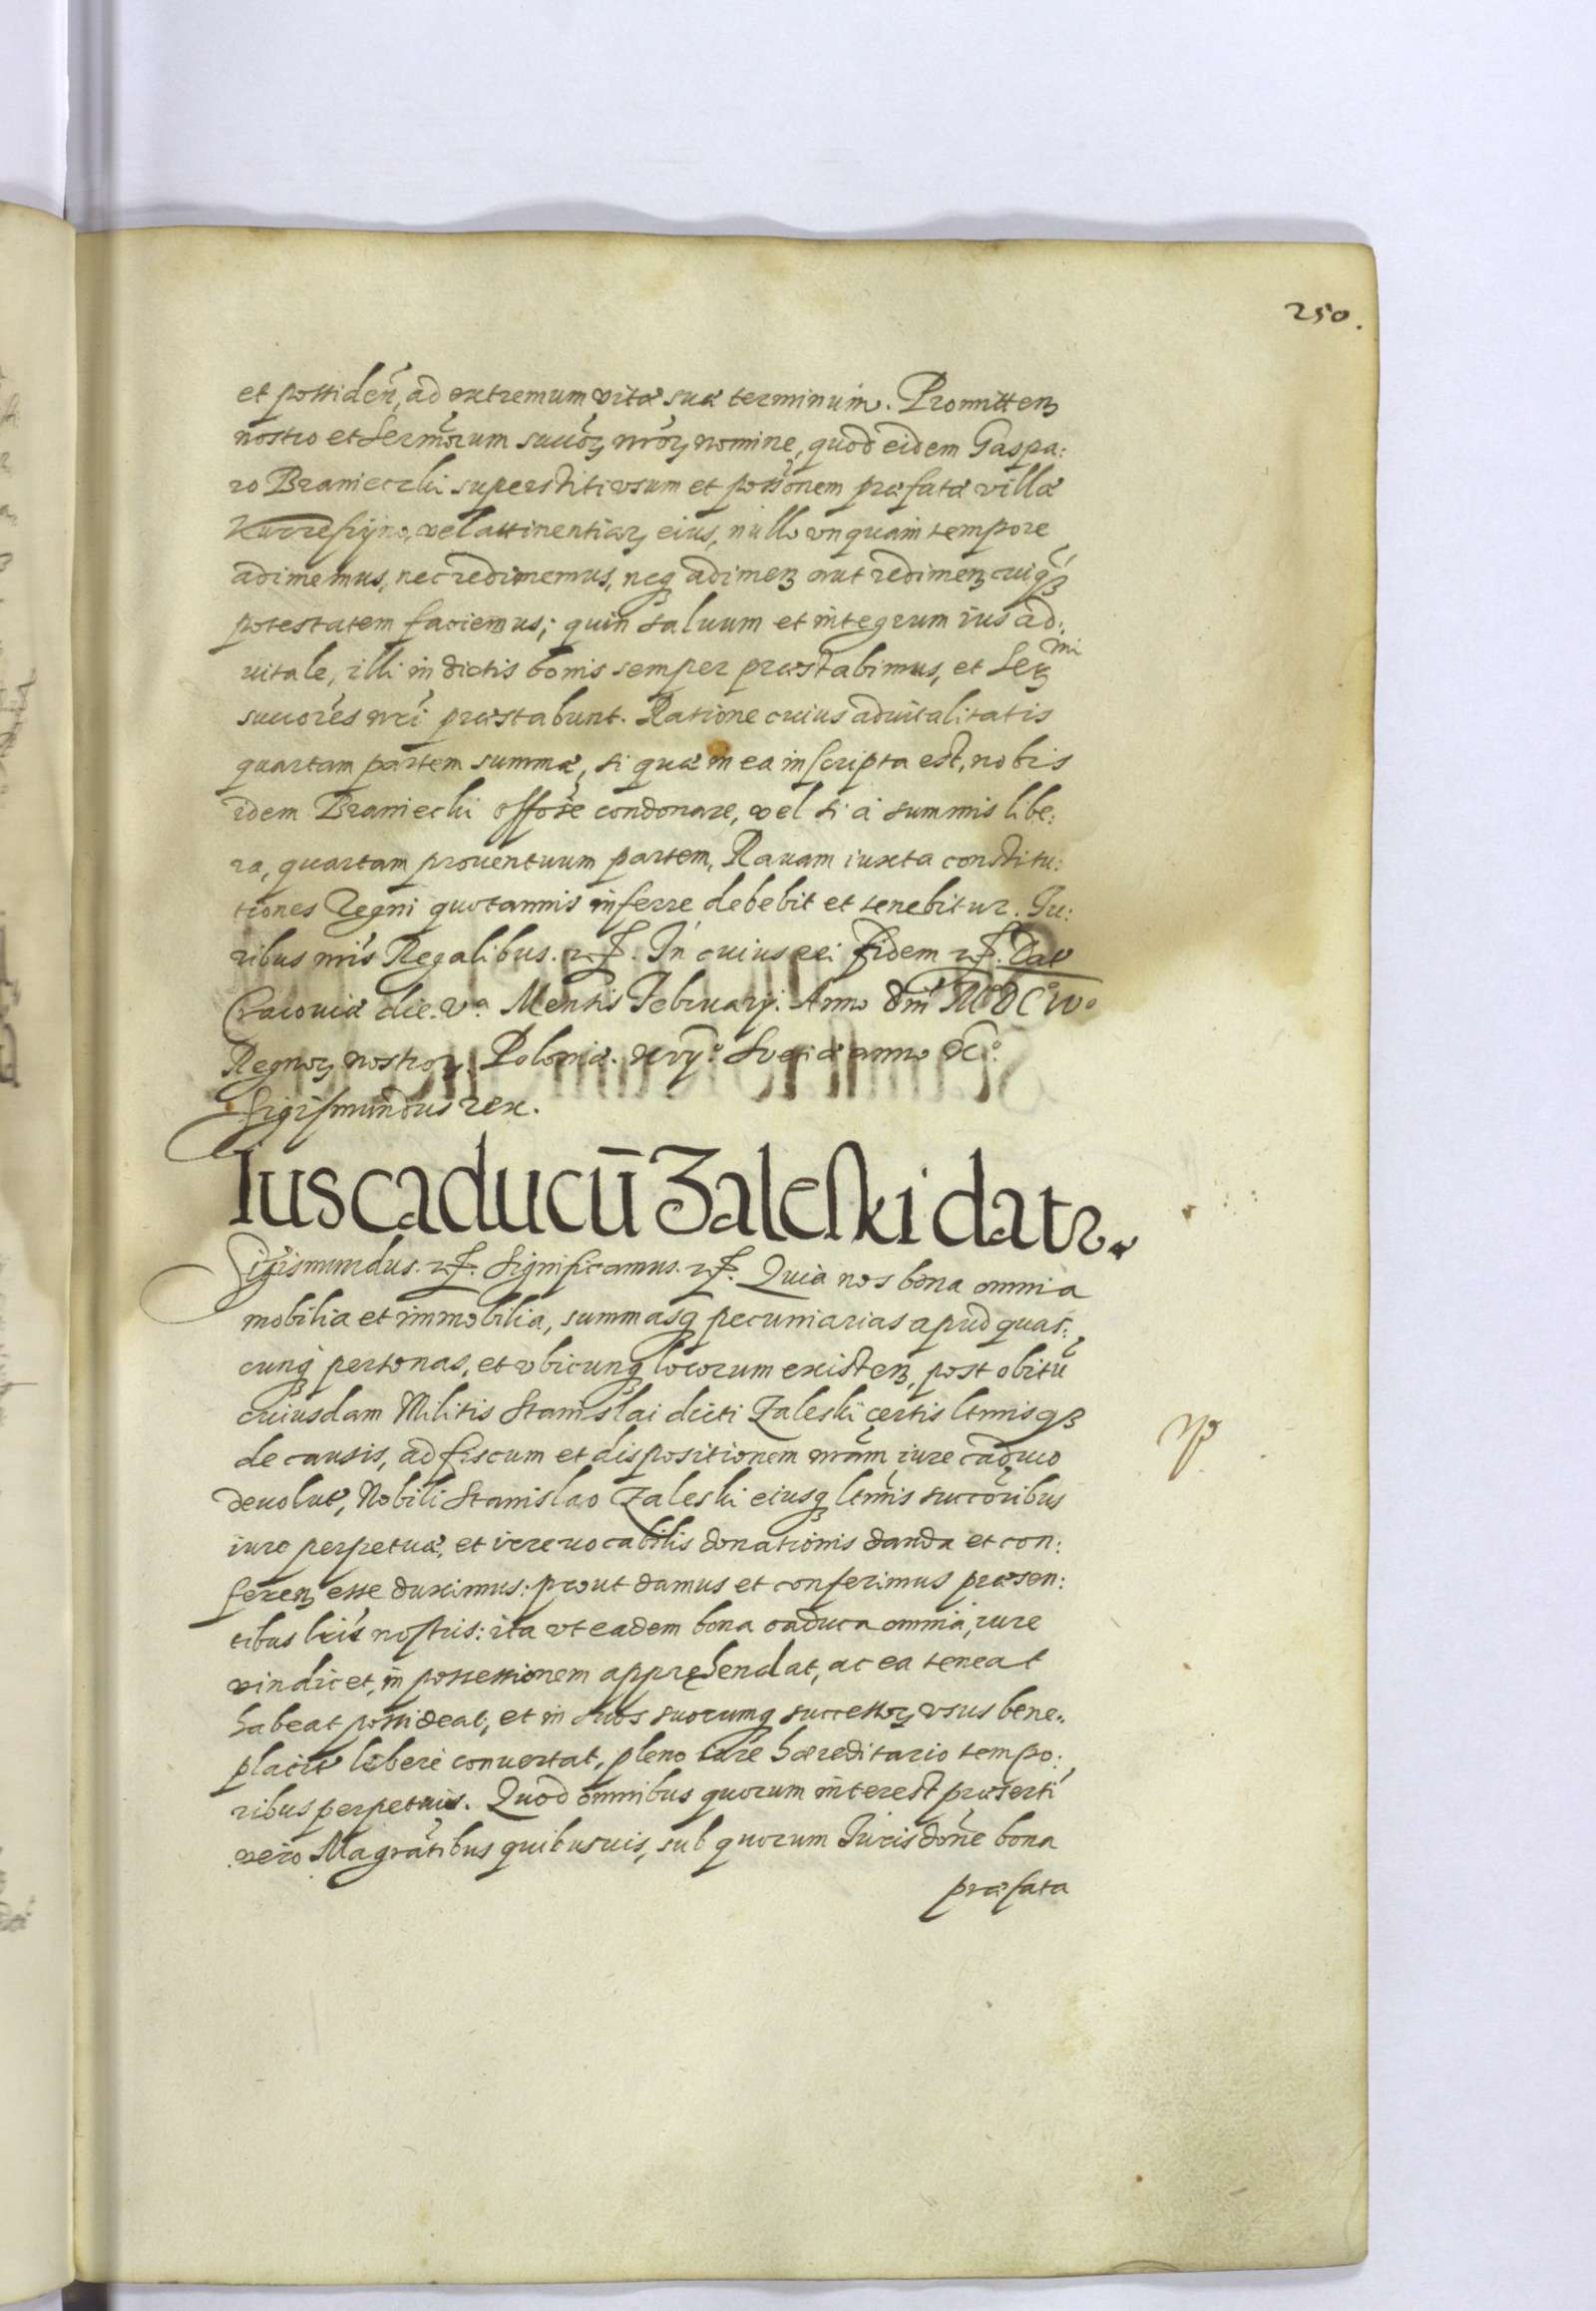 250.
et possiden, ad extremum vitæ suæ terminum. Promitten
nostro et Sermorum succor nror nomine, quod eidem Gaspa:
ro Branieczki superstiti vsum et possionem præfatæ villæ
vel attinentiar eius, nullo vnquam tempore
adimemus, nec redimemus, neq adimen aut redimen cuiq
potestatem faciemus; quin saluum et integrum ius ad:
uitale, illi in dictis bonis semper præstabimus, et Ser mi
succores nri præstabunt. Ratione cuius aduitalitatis
quartam partem summæ, si quæ in ea inscripta est, nobis
idem Braniecki offore condonare, vel si a summis libe:
ra, quartam prouentuum partem, Rauam iuxta constitu:
tiones Regni quotannis inferre debebit et tenebitur. Iu:
ribus nris Regalibus. In cuius rei fidem Dat
Cracouiæ die. va. Mensis Februarij. Anno Dni MDC
Regnor nostror. Poloniæ. xvij. Sueciæ anno xo.
Sigismundus rex.
Ius caducū Zaleski datr.
Sigismundus. Significamus. Quia nos bona omnia
mobilia et immobilia, summasq pecuniarias apud quas:
cunq personas, et vbicunq locorum existen, post obitū
cuiusdam Militis Stanislai dicti Zaleski certis ltmisq
de causis, ad fiscum et dispositionem nram iure caduco
deuolut, Nobili Stanislao Zaleski eiusq ltmis succoribus
iure perpetuæ, et irreuocabilis donationis danda et con:
feren esse duximus: prout damus et conferimus præsen:
tibus lris nostris: ita vt eadem bona caduca omnia, iure
vindicet, in possessionem apprehendat, ac ea teneat
habeat possideat, et in suos suorumq successor vsus bene:
placit libere conuertat, pleno iure hæreditario tempo:
ribus perpetuis. Quod omnibus quorum interest præserti
vero Magratibus quibusuis, sub quorum Iurisdone bona
præfata